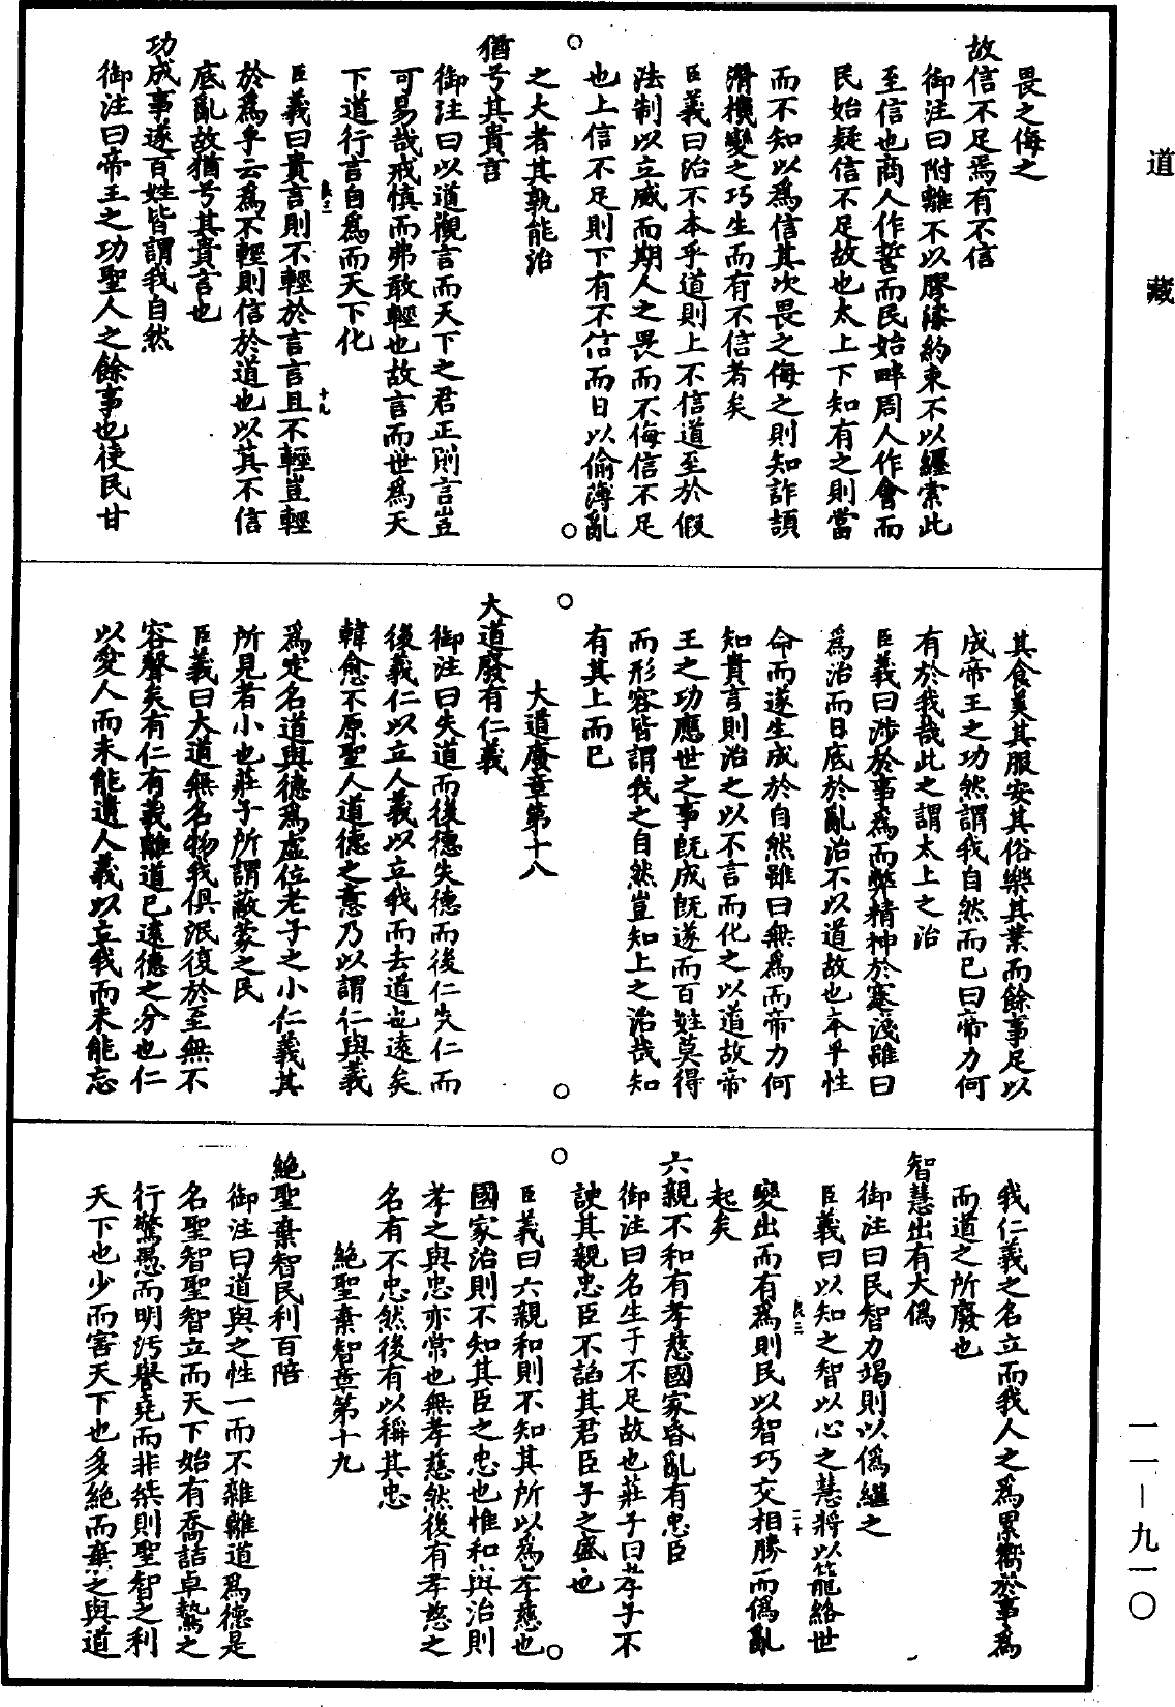 道藏
畏之侮之
故信不足焉有不信
御注曰附離不以膠漆約束不以纆索此
至信也商人作誓而民始畔周人作會而
民始疑信不足故也太上下知有之則當
而不知以爲信其次畏之侮之則知詐頡
滑機變之巧生而有不信者矣
臣義曰治不本乎道則上不信道至於假
法制以立威而期人之畏而不侮信不足
也上信不足則下有不信而日以偷薄亂
之大者其孰能治
猶兮其貴言
御注曰以道觀言而天下之君正則言豈
可易哉戒慎而弗敢輕也故言而世爲天
下道行言自爲而天下化
臣義曰貴言則不輕於言言且不輕豈輕
於爲乎云爲不輕則信於道也以其不信
底亂故猶兮其貴言也
功成事遂百姓皆謂我自然
御注曰帝王之功聖人之餘事也使民甘
其食美其服安其俗樂其業而餘事足以
成帝王之功然謂我自然而已曰帝力何
有於我哉此之謂太上之治
臣義曰涉於事爲而弊精神於蹇淺雖曰
爲治而日底於亂治不以道故也本乎性
命而遂生成於自然雖曰無爲而帝力何
知貴言則治之以不言而化之以道故帝
王之功應世之事既成既遂而百姓莫得
而形容皆謂我之自然豈知上之治哉知
有其上而已
大道廢章第十八
大道廢有仁義
御注曰失道而後德失德而後仁失仁而
後義仁以立人義以立我而去道也遠矣
韓愈不原聖人道德之意乃以謂仁與義
爲定名道與德爲虛位老子之小仁義其
所見者小也莊子所謂蔽蒙之民
臣義曰大道無名物我俱泯復於至無不
容聲矣有仁有義離道已遠德之分也仁
以愛人而未能遺人義以立我而未能忘
我仁義之名立而我人之爲累嚮於事爲
而道之所廢也
智慧出有大僞
御注曰民智力竭則以僞繼之
臣義曰以知之智以心之慧將以籠絡世
變出而有爲則民以智巧交相勝而僞亂
起矣
六親不和有孝慈國家昏亂有忠臣
御注曰名生于不足故也莊子曰孝子不
諛其親忠臣不諂其君臣子之盛也
臣義曰六親和則不知其所以爲孝慈也
國家治則不知其臣之忠也惟和與治則
孝之與忠亦常也無孝慈然後有孝慈之
名有不忠然後有以稱其忠
絕聖棄智章第十九
絕聖棄智民利百陪
御注曰道與之性一而不雜離道爲德是
名聖智聖智立而天下始有喬詰卓驁之
行驚愚而明汚譽堯而非桀則聖智之利
天下也少而害天下也多絕而棄之與道
一一—九一〇